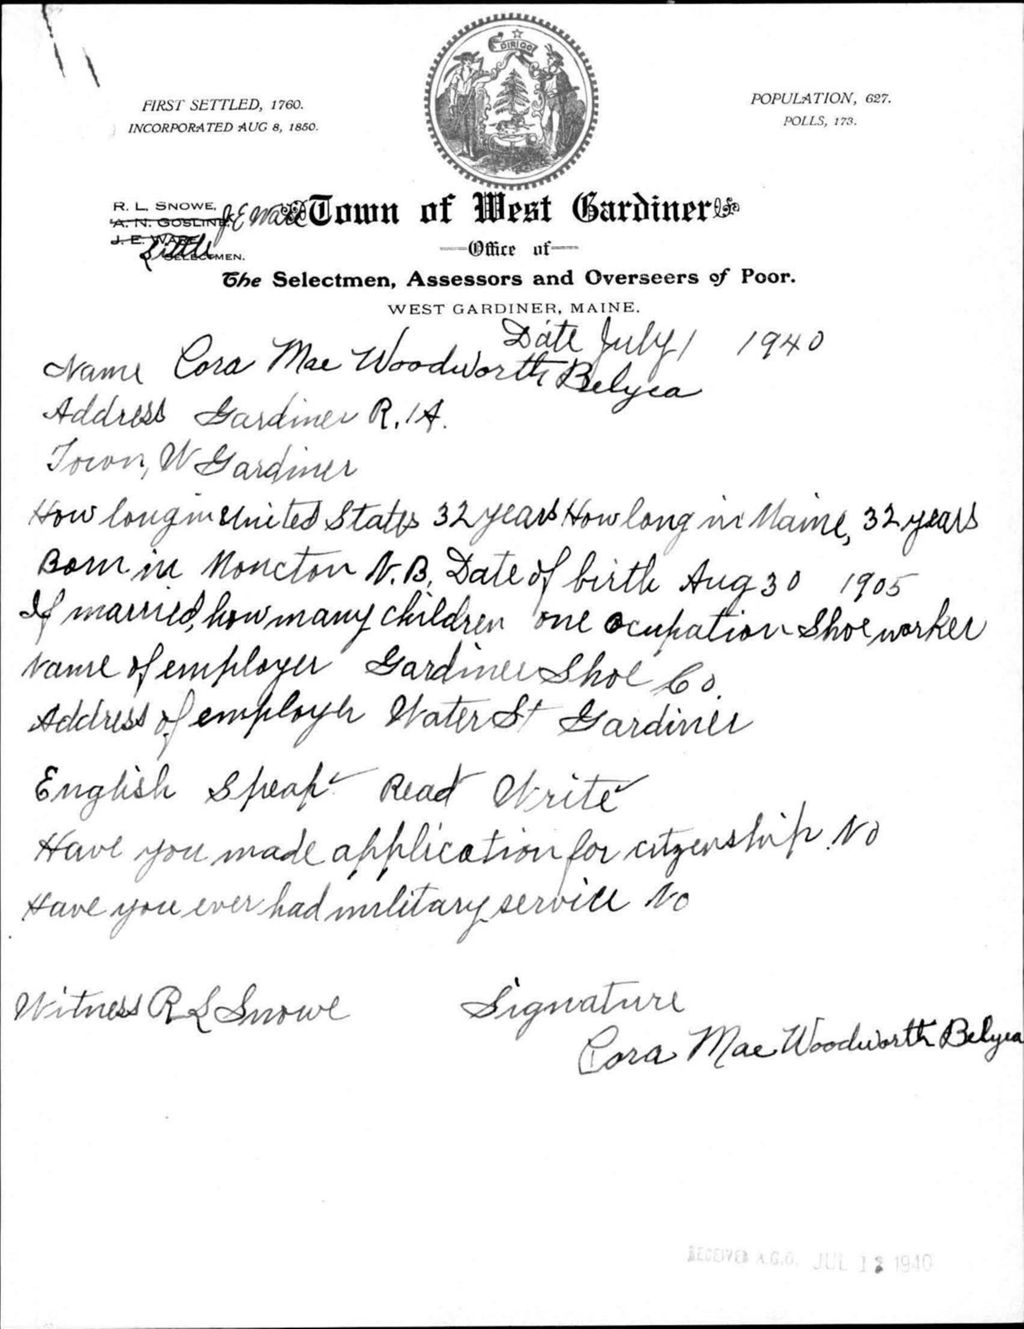 DIRIGO
FIRST SETTLED, 1760.
INCORPORATED AUG 8, 1850.
POPULATION, 627.
POLLS, 173.
R. L. SNOWE,
A. N. GOSLINE, J. E. Ware
J. E. WARE,
Little
SELECTMEN.
Town of West Gardiner
Office of
The Selectmen, Assessors and Overseers of Poor.
WEST GARDINER, MAINE.
Date July 1 1940
Name Cora Mae Woodworth Belyea
Address Gardiner R.1A.
Town, W Gardiner
How long in United States 32 years How long in Maine, 32 years
Born in Moncton N.B. Date of birth Aug 30 1905
If married, how many children one Ocupation Shoe worker
Name of employer Gardiner Shoe Co.
Address of employer Water St Gardiner
English Speak ✓ Read ✓ Write ✓
Have you made application for citzenship. No
Have you ever had military service No
Witness R L Snowe Signature
Cora Mae Woodworth Belyea
RECEIVED A.G.O. JUL 12 1940